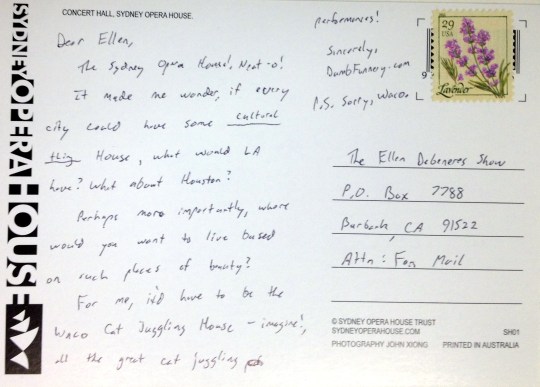 CONCERT HALL, SYDNEY OPERA HOUSE.
SYDNEY OPERA HOUSE
Dear Ellen,
The Sydney Opera House! Neat-o!
It made me wonder, if every
city could have some cultural
thing House, what would LA
have? What about Houston?
Perhaps more importantly, where
would you want to live based
on such places of beauty?
For me, it'd have to be the
Waco Cat Juggling House - imagine!,
all the great cat juggling
performances!
Sincerely,
DumbFunnery.com
P.S. Sorry, Waco.
29
USA
Lavender
9
The Ellen Debeneres Show
P.O. Box 7788
Burbank, CA 91522
Attn: Fan Mail
© SYDNEY OPERA HOUSE TRUST
SYDNEYOPERAHOUSE.COM SH01
PHOTOGRAPHY JOHN XIONG PRINTED IN AUSTRALIA